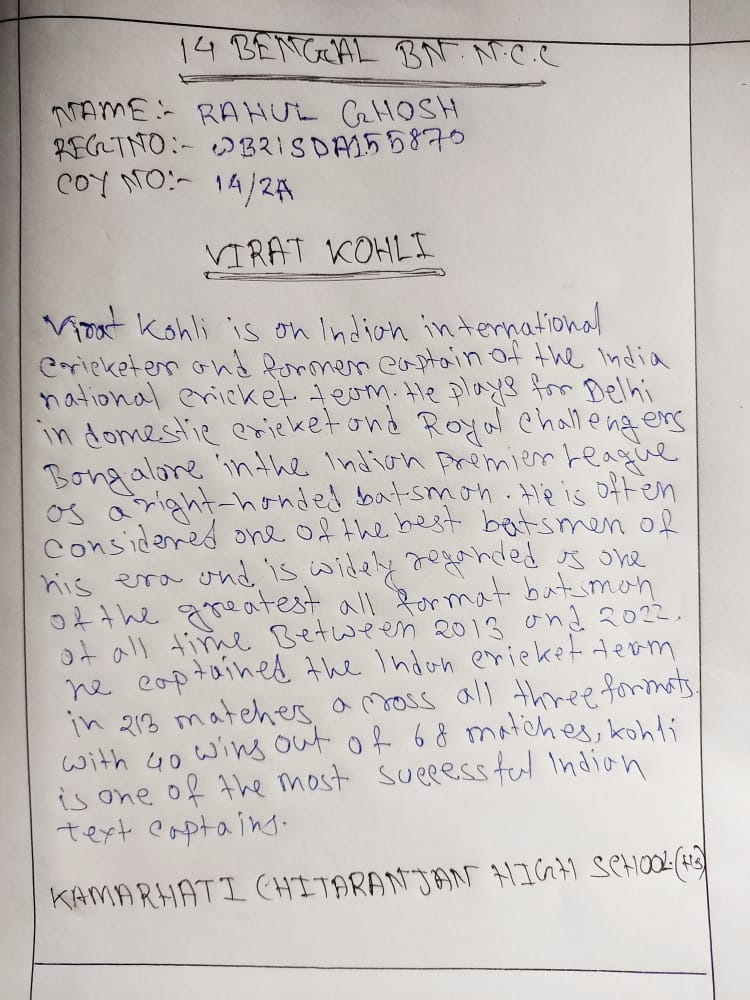 14 BENGAL BN. N.C.C
NAME:- RAHUL GHOSH
REGTNO:- WB21SDA155870
COY NO:- 14/2A
VIRAT KOHLI
Virat Kohli is an Indian international
cricketer and former captain of the India
national cricket team. He plays for Delhi
in domestic cricket and Royal Challengers
Bangalore in the Indian Premier League
as a right-handed batsman. He is often
considered one of the best batsmen of
his era and is widely regarded as one
of the greatest all format batsman
of all time Between 2013 and 2022,
he captained the Indan cricket team
in 213 matches across all three formats.
with 40 wins out of 68 matches, kohli
is one of the most successful Indian
text captains.
KAMARHATI CHITARANJAN HIGH SCHOOL.(HS)